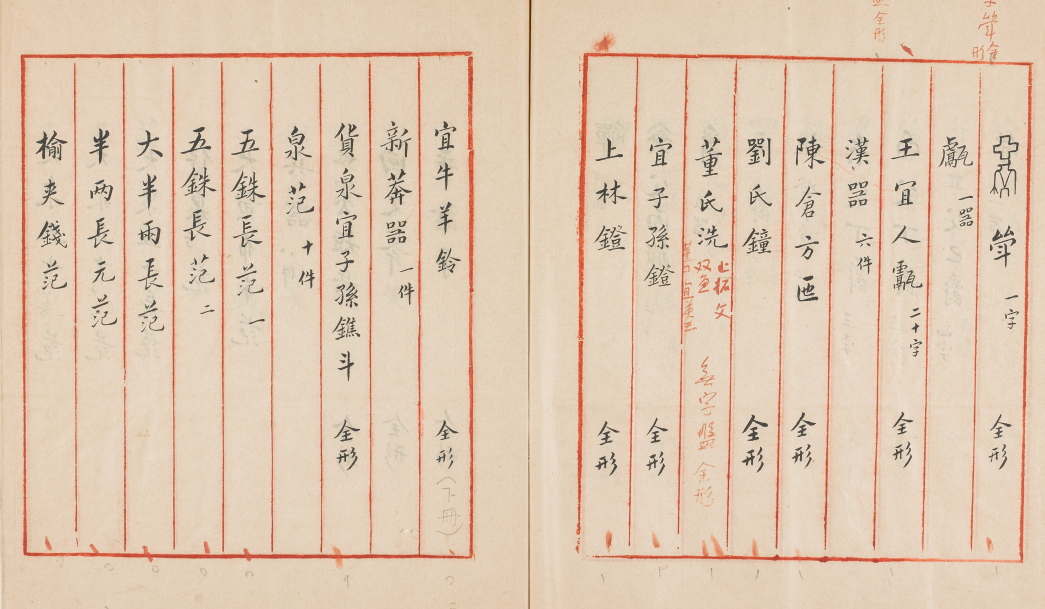 斝 一字 全形
甗 一器
王宜人甗 二十字 全形
漢器 六件
陳倉方匜 全形
劉氏鐘 全形
董氏洗
止拓文
双鱼
無字盤 全形
宜子孫鐙 全形
上林鐙 全形
宜牛羊鈴 全形(下冊)
新莽器 一件
貨泉宜子孫鐎斗 全形
泉范 十件
五銖長范 一
五銖長范 二
大半兩長范
半兩長元范
榆夾錢范
全形